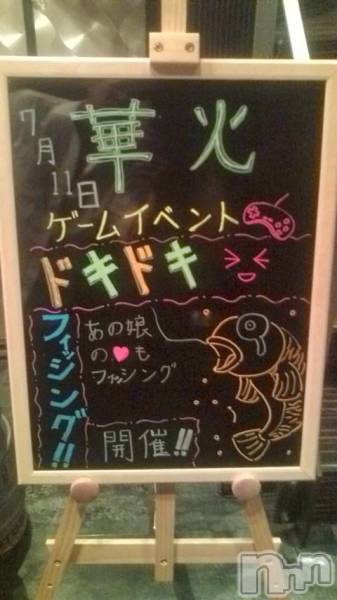 7月11日
華火
ゲームイベント
ドキドキ
フィッシング!!
あの娘
の♥も
フィッシング
開催!!